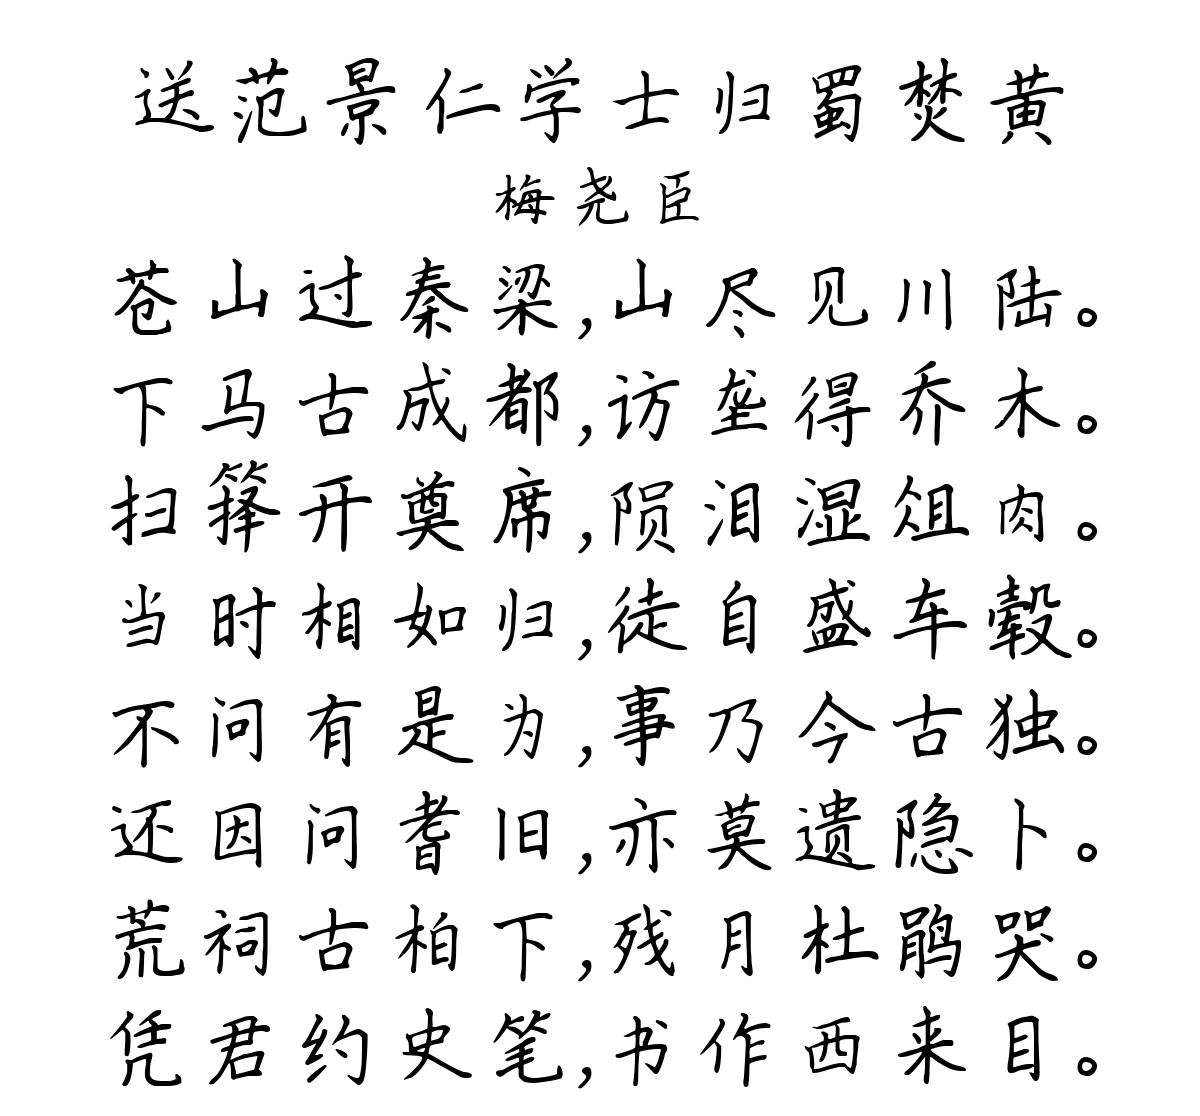 送范景仁学士归蜀焚黄
梅尧臣
苍山过秦梁,山尽见川陆。
下马古成都,访垄得乔木。
扫箨开奠席,陨泪湿俎肉。
当时相如归,徒自盛车毂。
不问有是为,事乃今古独。
还因问耆旧,亦莫遗隐卜。
荒祠古柏下,残月杜鹃哭。
凭君约史笔,书作西来目。